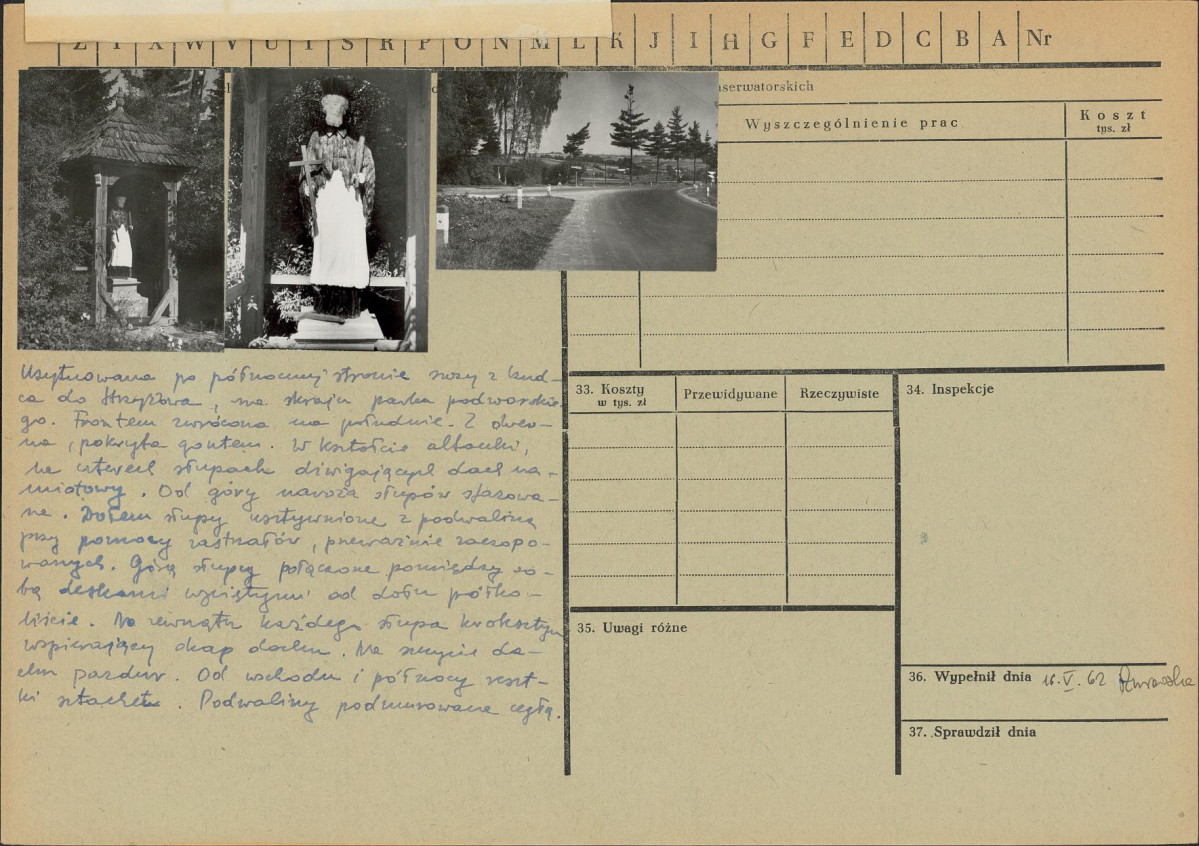 Z Y X W V U T S R P O N M L K J I H G F E D C B A Nr
nserwatorskich
Wyszczególnienie prac
Koszt
tys. zł
Usytuowana po północnej stronie szosy z Czud-
ca do Strzyżowa, na skraju parku podworskie-
go. Frontem zwrócona na południe. Z drew-
na, pokryta gontem. W kształcie altanki,
na czterech słupach dźwigających dach na-
miotowy. Od góry naroża słupów sfazowa-
ne. Dołem słupy usztywnione z podwaliną
przy pomocy zastrzałów, przeważnie zaczopo-
wanych. Górą słupy połączone pomiędzy so-
bą deskami wyciętymi od dołu półko-
liście. Na zewnątrz każdego słupa kroksztyn
wspierający okap dachu. Na szczycie da-
chu pazdur. Od wschodu i północy reszt-
ki sztachet. Podwaliny podmurowane cegłą.
33. Koszty
w tys. zł
Przewidywane
Rzeczywiste
34. Inspekcje
35. Uwagi różne
36. Wypełnił dnia 16.V.62
37. Sprawdził dnia